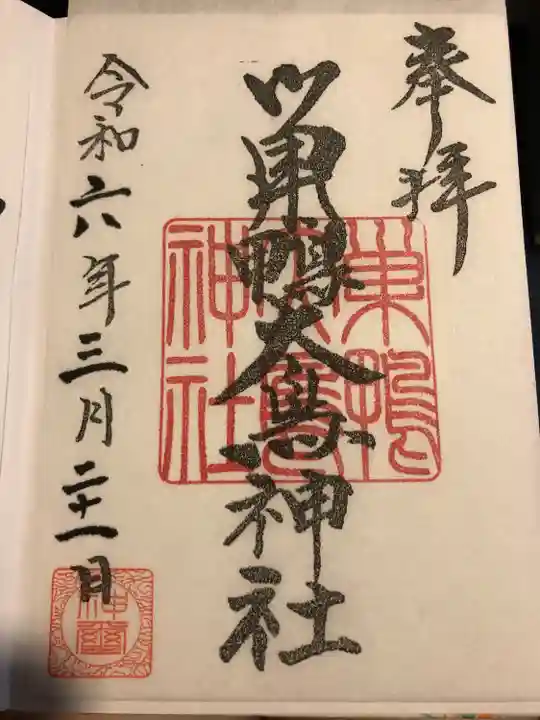 奉拝
巣鴨大鳥神社
令和六年三月二十一日
巣鴨
大鳥
神社